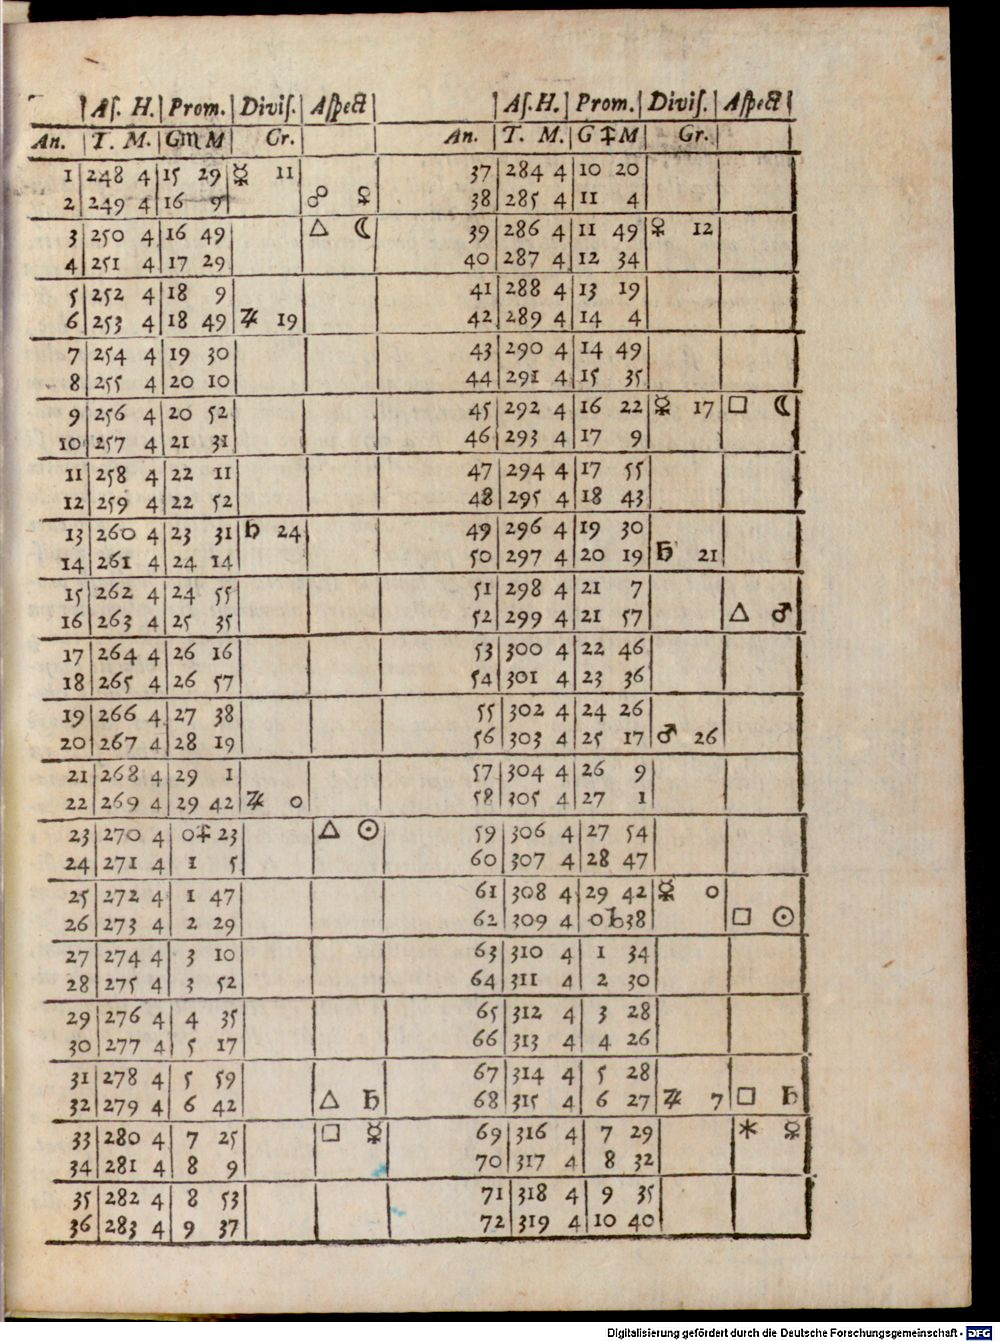 Aſ. H. Prom. Diviſ. Aſpect
An. T. M. G ♏ M Gr.
1 248 4 15 29 ☿ 11
2 249 4 16 9 ☍ ♀
3 250 4 16 49 △ ☾
4 251 4 17 29
5 252 4 18 9
6 253 4 18 49 ♃ 19
7 254 4 19 30
8 255 4 20 10
9 256 4 20 52
10 257 4 21 31
11 258 4 22 11
12 259 4 22 52
13 260 4 23 31 ♄ 24
14 261 4 24 14
15 262 4 24 55
16 263 4 25 35
17 264 4 26 16
18 265 4 26 57
19 266 4 27 38
20 267 4 28 19
21 268 4 29 1
22 269 4 29 42 ♃ 0
23 270 4 0 ♐ 23 △ ☉
24 271 4 1 5
25 272 4 1 47
26 273 4 2 29
27 274 4 3 10
28 275 4 3 52
29 276 4 4 35
30 277 4 5 17
31 278 4 5 59
32 279 4 6 42 △ ♄
33 280 4 7 25 □ ☿
34 281 4 8 9
35 282 4 8 53
36 283 4 9 37
Aſ. H. Prom. Diviſ. Aſpect
An. T. M. G ♐ M Gr.
37 284 4 10 20
38 285 4 11 4
39 286 4 11 49 ♀ 12
40 287 4 12 34
41 288 4 13 19
42 289 4 14 4
43 290 4 14 49
44 291 4 15 35
45 292 4 16 22 ☿ 17 □ ☾
46 293 4 17 9
47 294 4 17 55
48 295 4 18 43
49 296 4 19 30
50 297 4 20 19 ♄ 21
51 298 4 21 7
52 299 4 21 57 △ ♂
53 300 4 22 46
54 301 4 23 36
55 302 4 24 26
56 303 4 25 17 ♂ 26
57 304 4 26 9
58 305 4 27 1
59 306 4 27 54
60 307 4 28 47
61 308 4 29 42 ☿ 0
62 309 4 0 ♑ 38 □ ☉
63 310 4 1 34
64 311 4 2 30
65 312 4 3 28
66 313 4 4 26
67 314 4 5 28
68 315 4 6 27 ♃ 7 □ ♄
69 316 4 7 29 ⚹ ☿
70 317 4 8 32
71 318 4 9 35
72 319 4 10 40
Digitalisierung gefördert durch die Deutsche Forschungsgemeinschaft - DFG